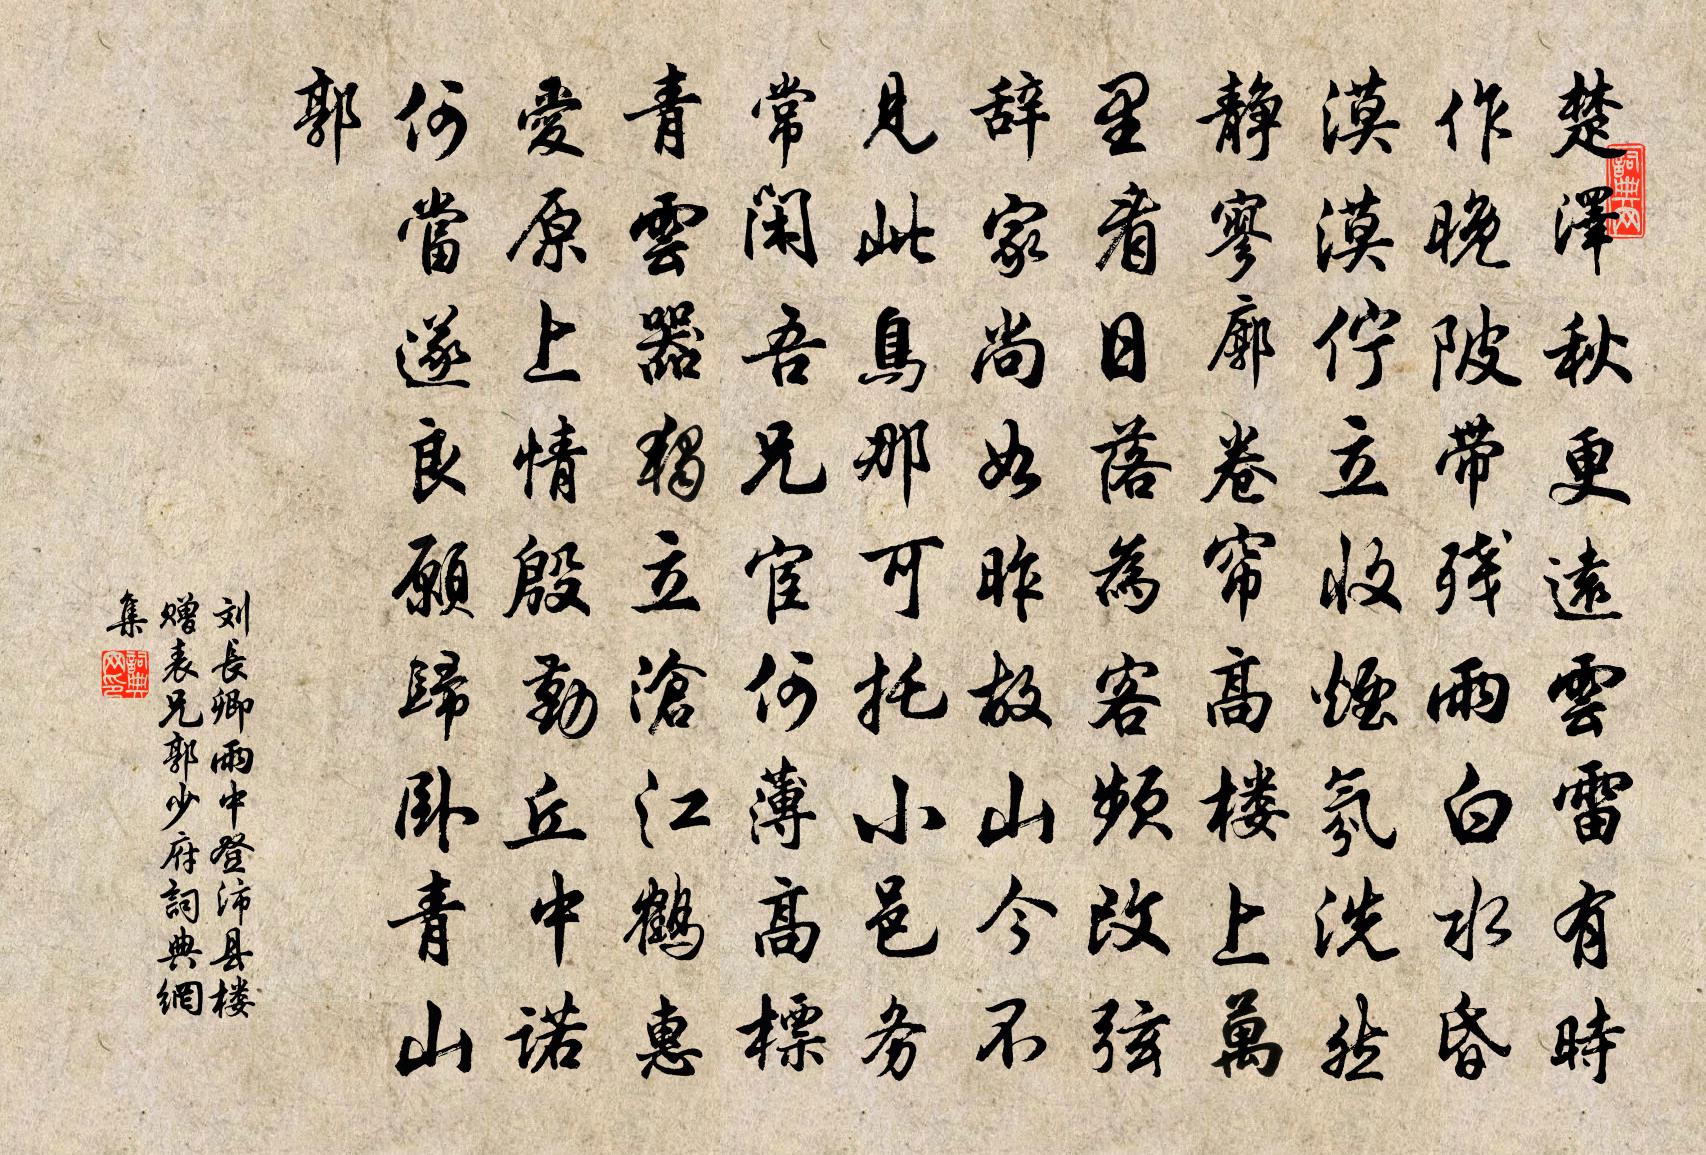 楚澤秋更遠雲雷有時
作晚陂带残雨白水昏
漠漠佇立收煙氛洗然
静寥廓卷帘高楼上萬
里看日落為客频改弦
辞家尚如昨故山今不
見此鳥那可托小邑务
常閑吾兄宦何薄高標
青雲器獨立滄江鶴惠
愛原上情殷勤丘中诺
何當遂良願歸卧青山
郭
刘長卿雨中登沛县楼
赠表兄郭少府詞典網
集
詞典网
詞典网印